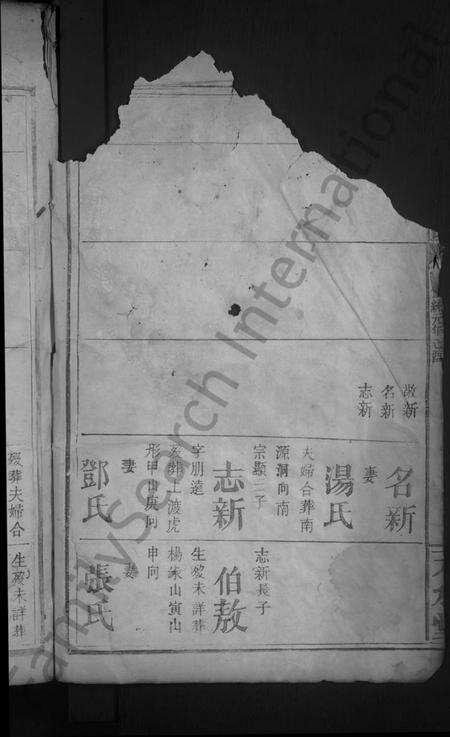 敬新
名新
志新
名新
妻
湯氏
夫婦合葬南
源洞向南
宗顯二子
志新
字朋遠
妻
鄧氏
志新長子
伯敖
生歿未詳葬
楊家山寅山
申向
妻
張氏
歿葬夫婦合
生歿未詳葬
FamilySearch International